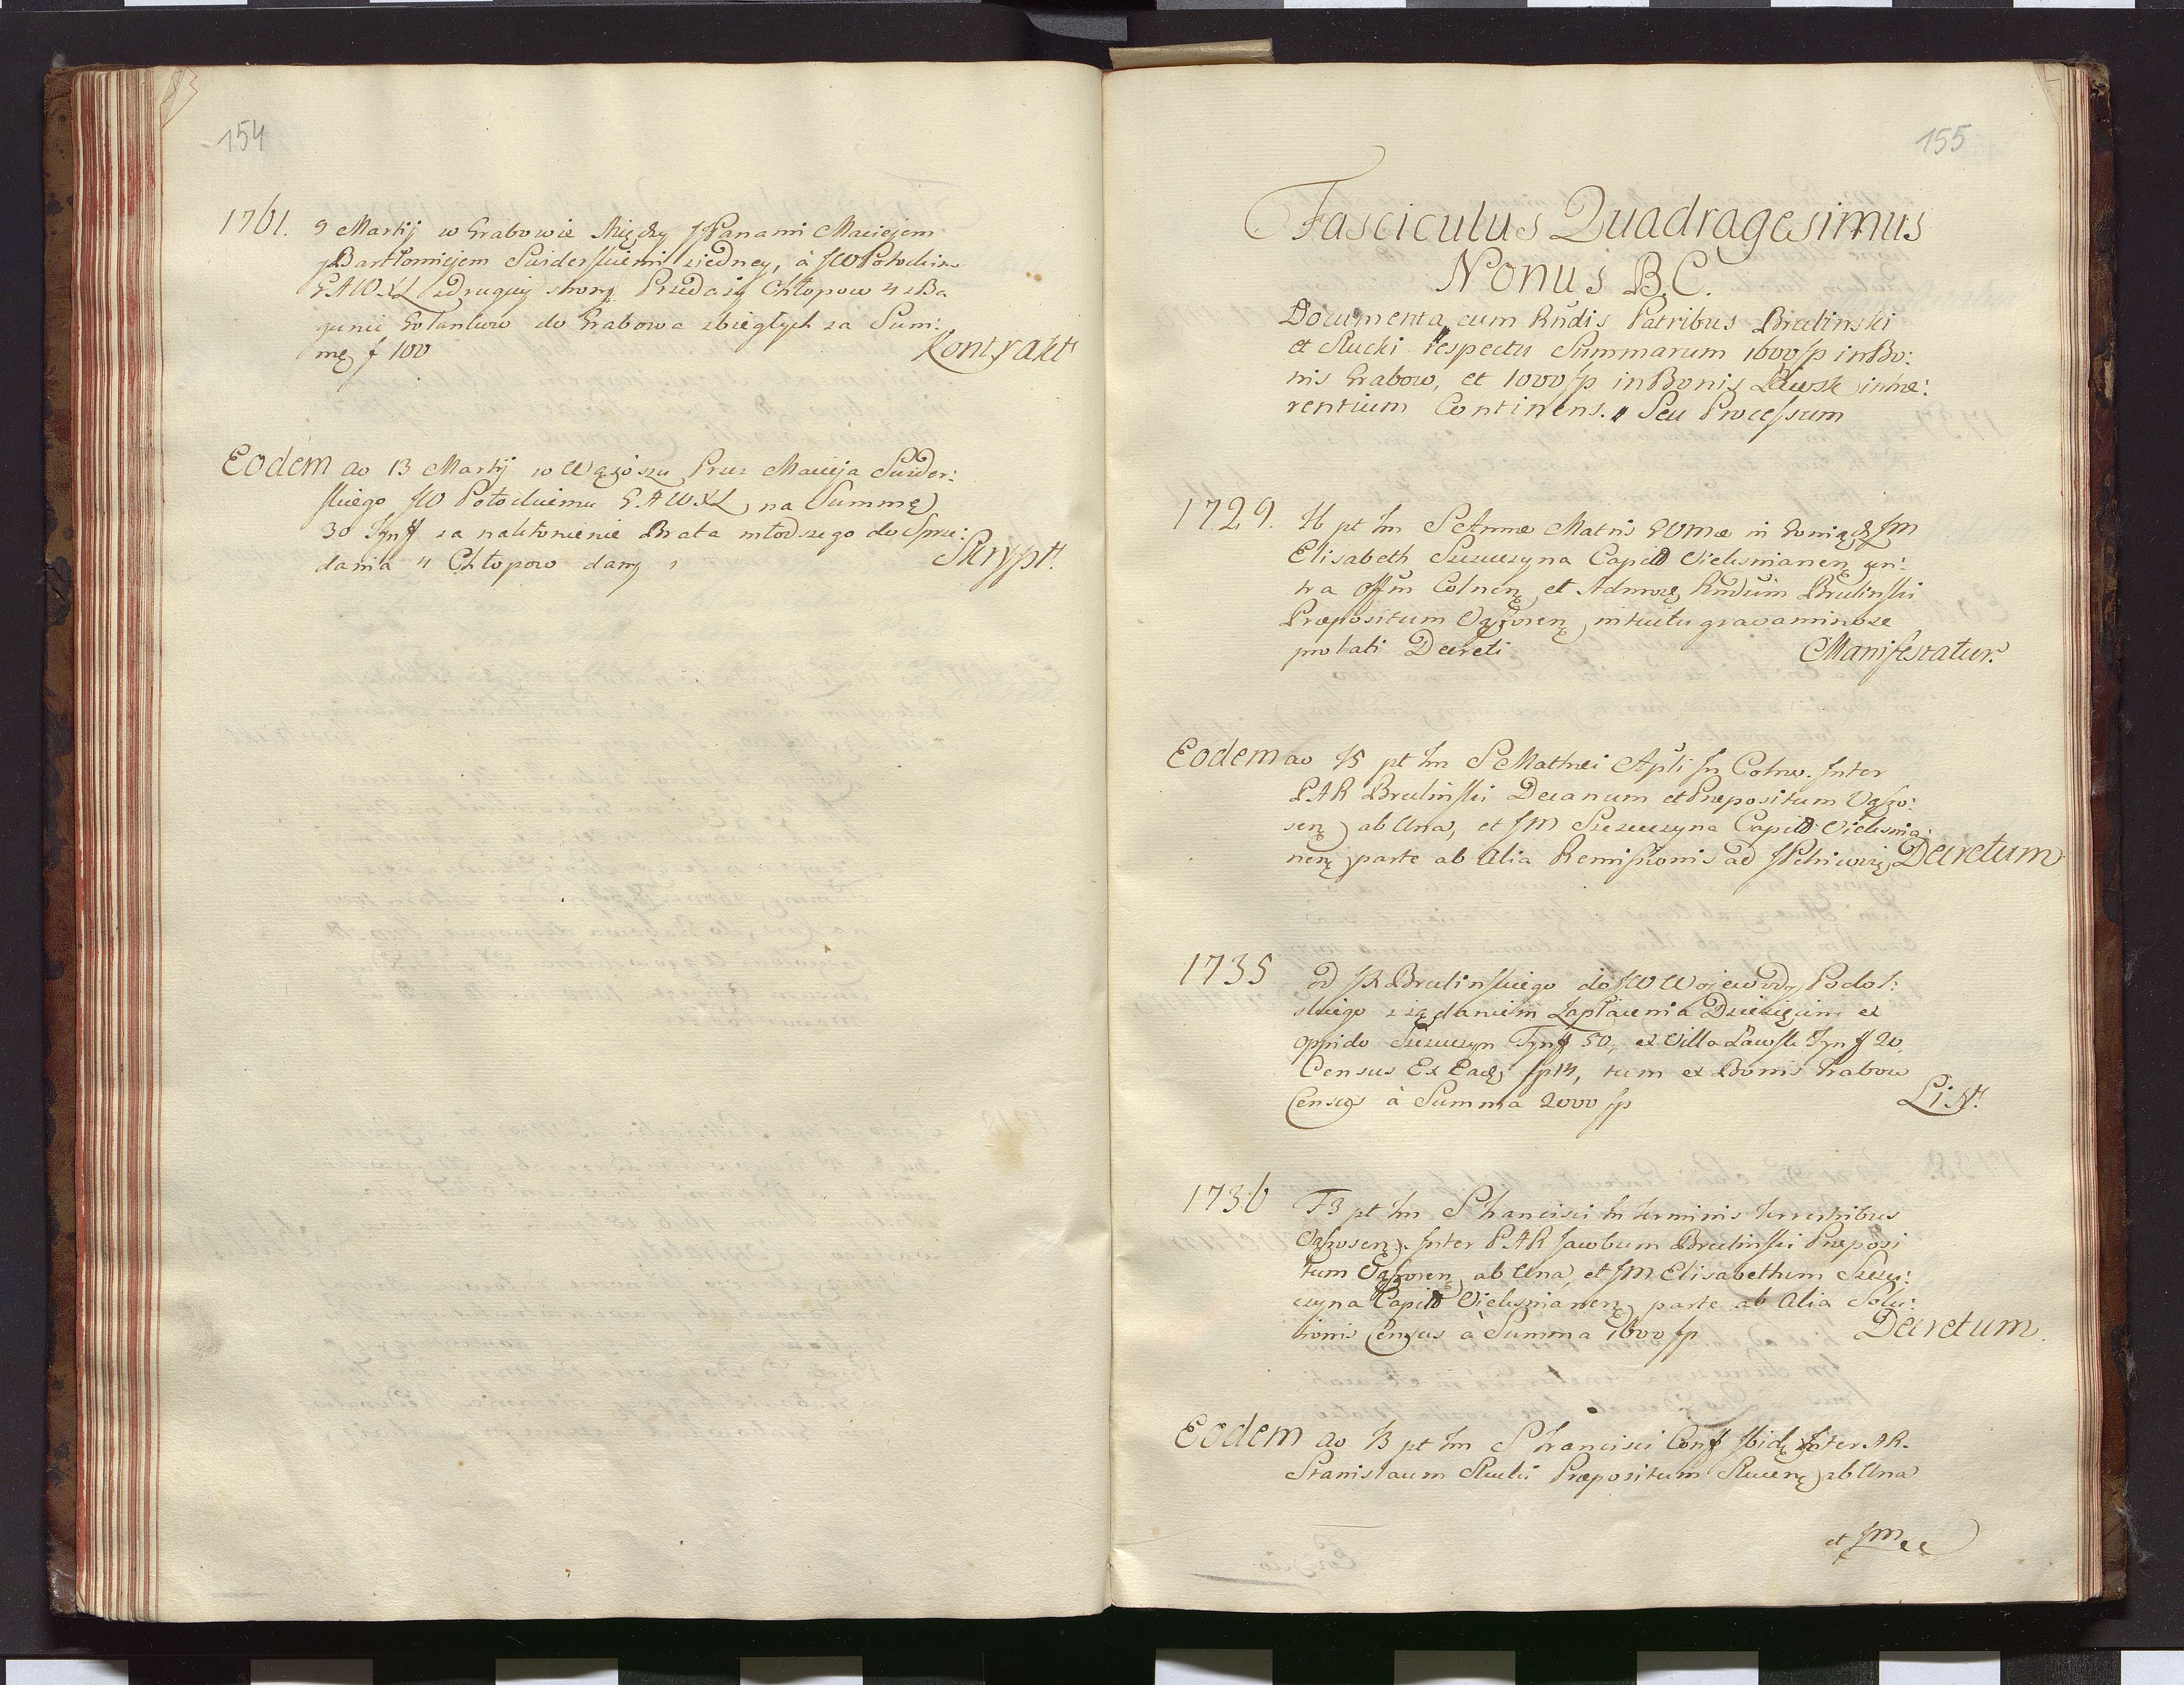 154
1761. 9 Martij w Grabowie Między JPanami Maciejem
y Bartłomiejem Swiderskiemi z iedney, à JW Potockim
G A W X L z drugiey strony Przedaży Chłopow 4 z Ba
gunic do Grabowa zbiegłych za Sum:
mę f 100 Kontrakt
Eodem ao 13 Martij w Wąsoszu Przez Macieja Swider:
skiego JW Potockiemu G A W X L na Summę
30 Tynff za nakłonienie Brata młodszego do Sprze:
dania 4 Chłopow dany Skrypt.
155
Fasciculus Quadragesimus
Nonus B.C.
Documenta cum Rndis Patribus Brulinski
et Rucki respectu Summarum 1600 fp in Bo:
nis Grabow, et 1000 fp in Bonis Lawsk inhæ:
rentium Continens. Seu Processum
1729. pt fm S Annæ Matris in Goniądz JM
Elisabeth Szczuczyna Capit Vielunianen con:
tra Offm Colnen et Admodu Rndum Brulinski
Præpositum Vąsosen intuitu gravaminose
prolati Decreti Manifestatur.
Eodem ao 15 pt fm S Mathei Apli In Colno. Inter
P A R Brulinski Decanum et Præpositum Vąso:
sen ab Una, et JM Szczuczyna Capit Vielunia:
nen parte ab Alia Remissionis ad Decretum
1735 Od JX Brulinskiego do JW Wojewody Podol:
skiego z żądaniem Zapłacenia Dziesięciny ex
oppido Szczuczyn Tynff 50, ex Villa Lawsk Tynff 20,
Census Ex Ead fp, tum ex Bonis Grabow
Census à Summa 2000 fp List.
1736 F3 pt fm S Francisci In terminis terrestribus
Vąsosen. Inter P A R Jacobum Brulinski Præposi
tum Vąsosen ab Una, et JM Elisabetham Szczu:
czyna Capit Vielunianen parte ab Alia Solu:
tionis Census à Summa 1600 fp Decretum.
Eodem ao 13 pt fm S Francisci Conff Ibid Inter A R.
Stanislaum Præpositum ab Una
et JM